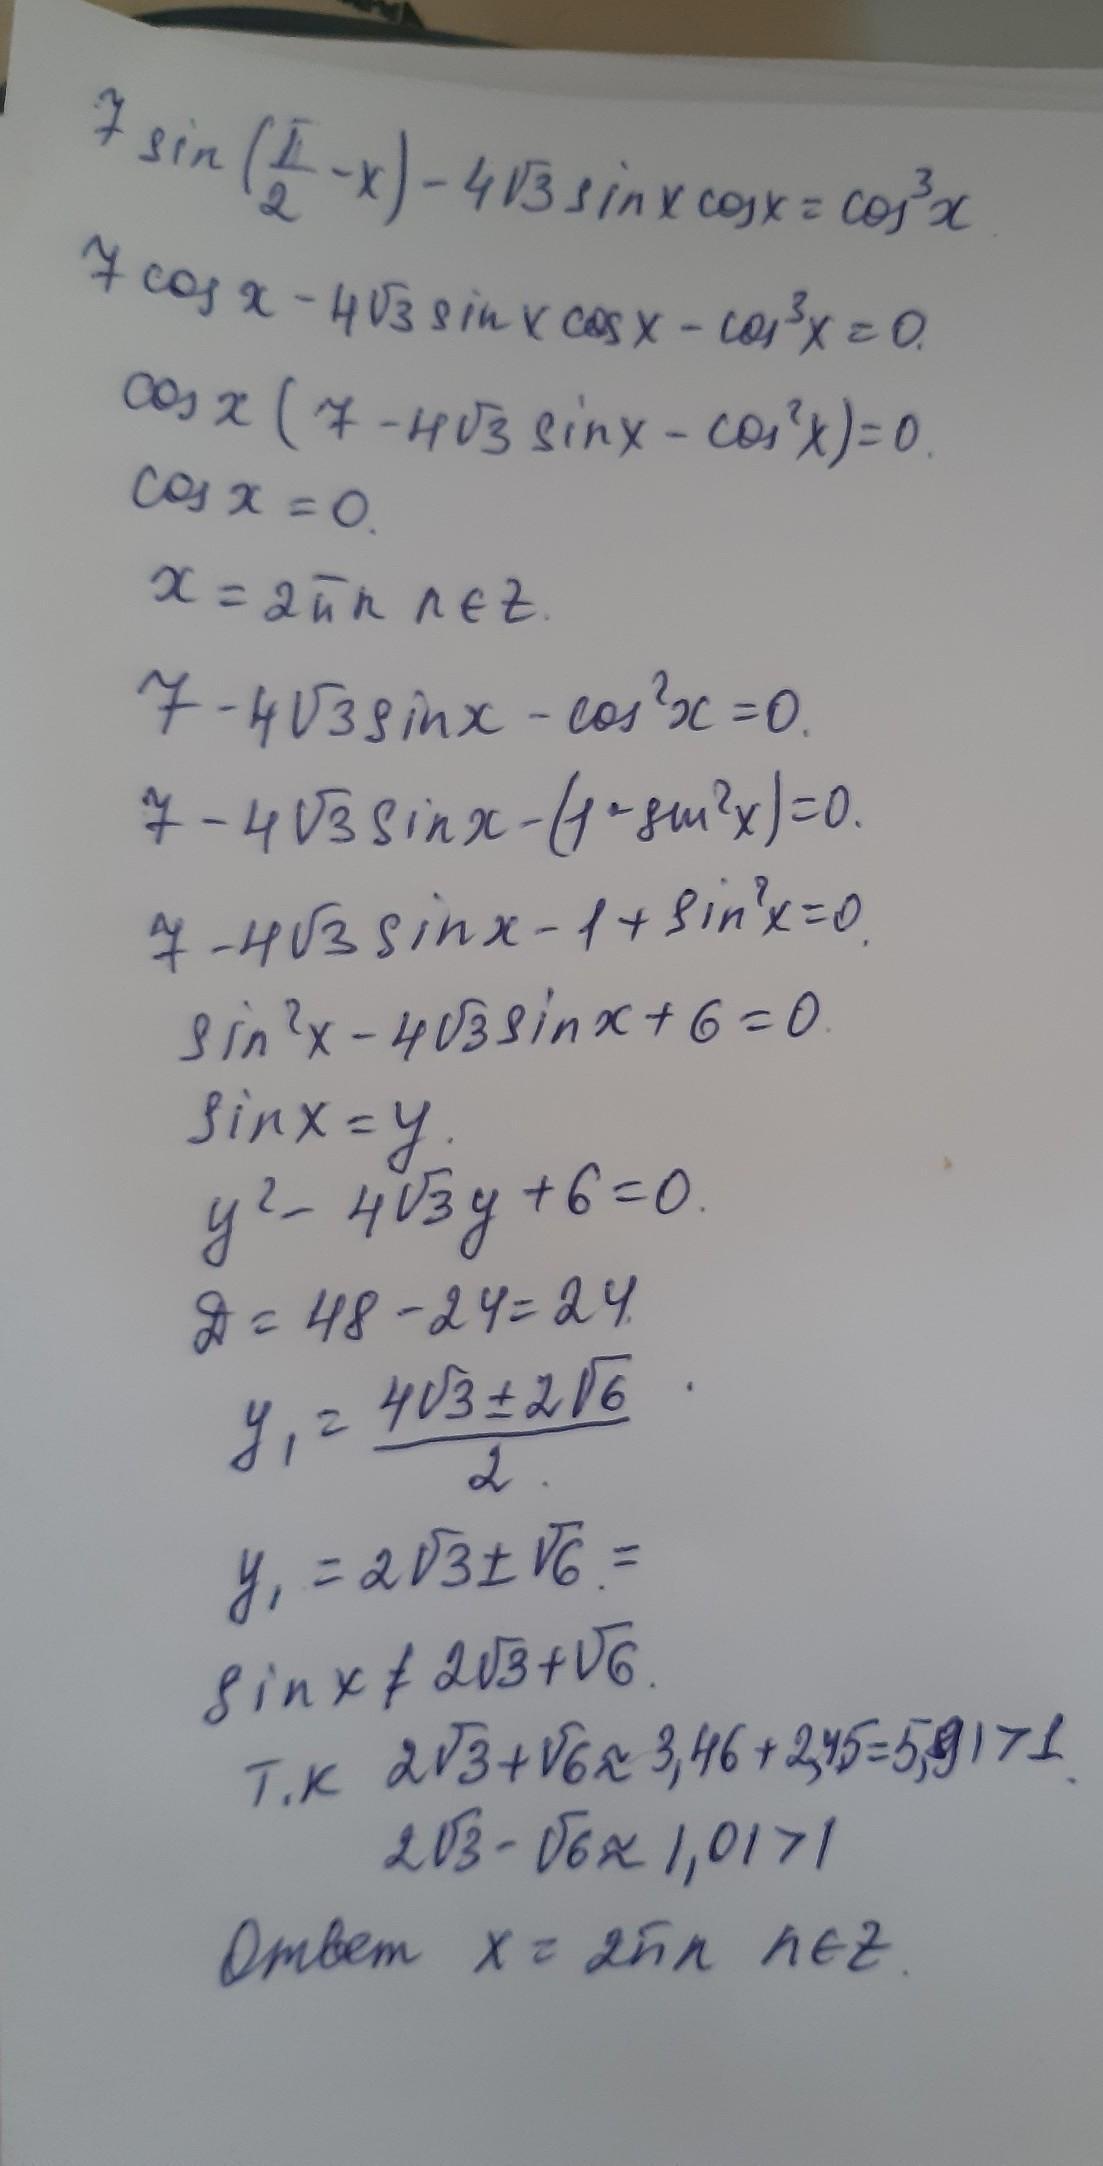 7 sin (π/2 - x) - 4√3 sin x cos x = cos³x
7 cos x - 4√3 sin x cos x - cos³x = 0.
cos x (7 - 4√3 sin x - cos²x) = 0.
cos x = 0.
x = 2πn n ∈ Z.
7 - 4√3 sin x - cos²x = 0.
7 - 4√3 sin x - (1 - sin²x) = 0.
7 - 4√3 sin x - 1 + sin²x = 0.
sin²x - 4√3 sin x + 6 = 0.
sin x = y.
y² - 4√3 y + 6 = 0.
D = 48 - 24 = 24.
y₁ = (4√3 ± 2√6)/2.
y₁ = 2√3 ± √6. =
sin x ≠ 2√3 + √6.
т.к 2√3 + √6 ≈ 3,46 + 2,45 = 5,91 > 1.
2√3 - √6 ≈ 1,01 > 1
Ответ x = 2πn n ∈ Z.